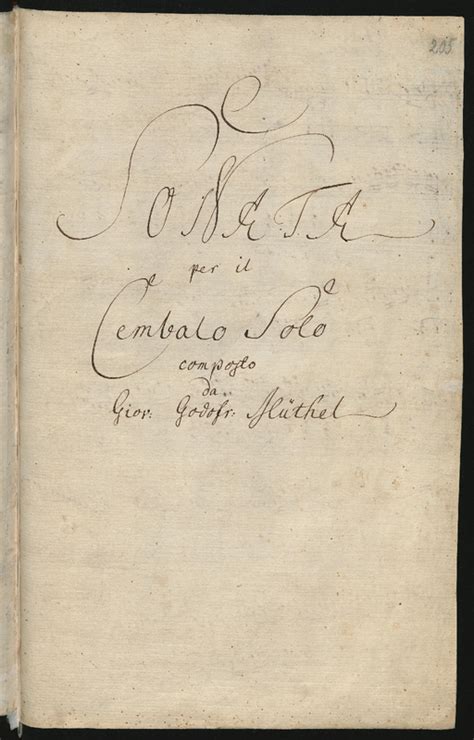 205
SONATA
per il
Cembalo Solo
composto
da
Giov: Godofr: Müthel